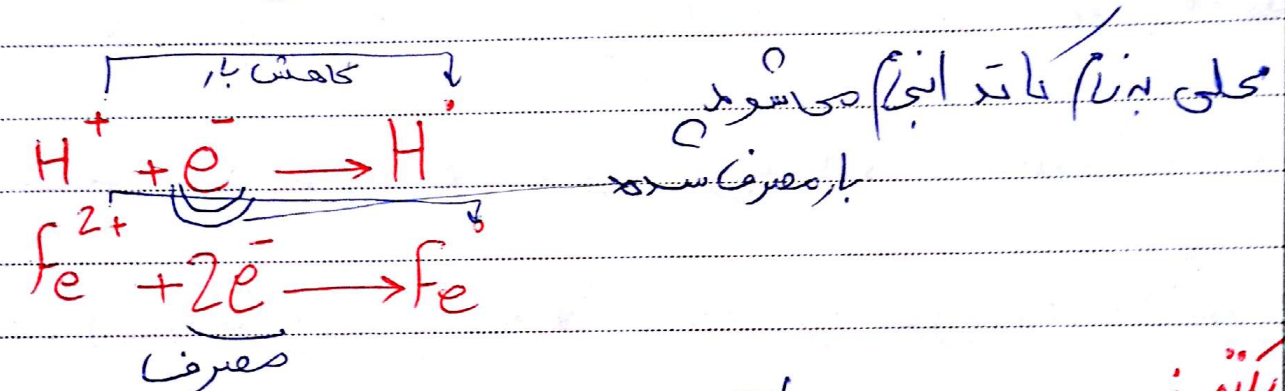 محلی به نام کاتد انجام می‌شوند
کاهش بار
H⁺ + e⁻ → H⁰
بار مصرف شده
Fe²⁺ + 2e⁻ → Fe⁰
مصرف